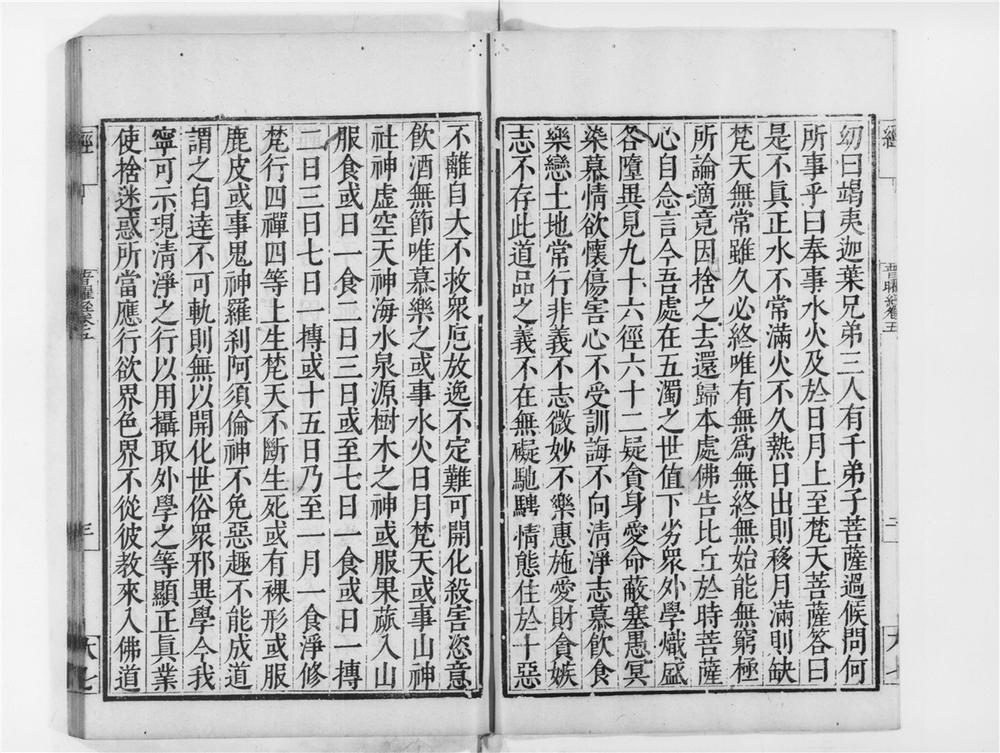 經
普曜經卷五
二
大七
㓜曰竭夷迦葉兄弟三人有千弟子菩薩過候問何
所事乎曰奉事水火及於日月上至梵天菩薩答曰
是不眞正水不常滿火不久熱日出則移月滿則缺
梵天無常雖久必終唯有無爲無終無始能無窮極
所論適竟因捨之去還歸本處佛告比丘於時菩薩
心自念言今吾處在五濁之世值下劣衆外學熾盛
各墮異見九十六徑六十二疑貪身愛命蔽塞愚冥
染慕情欲懷傷害心不受訓誨不向清淨志慕飲食
樂戀土地常行非義不志微妙不樂惠施愛財貪嫉
志不存此道品之義不在無礙馳騁情態住於十惡
不離自大不救衆厄放逸不定難可開化殺害恣意
飲酒無節唯慕樂之或事水火日月梵天或事山神
社神虛空天神海水泉源樹木之神或服果蓏入山
服食或日一食二日三日或至七日一食或日一摶
二日三日七日一摶或十五日乃至一月一食淨修
梵行四禪四等上生梵天不斷生死或有裸形或服
鹿皮或事鬼神羅刹阿須倫神不免惡趣不能成道
謂之自達不可軌則無以開化世俗衆邪異學今我
寧可示現清淨之行以用攝取外學之等顯正眞業
使捨迷惑所當應行欲界色界不從彼敎來入佛道
經
普曜經卷五
三
大七